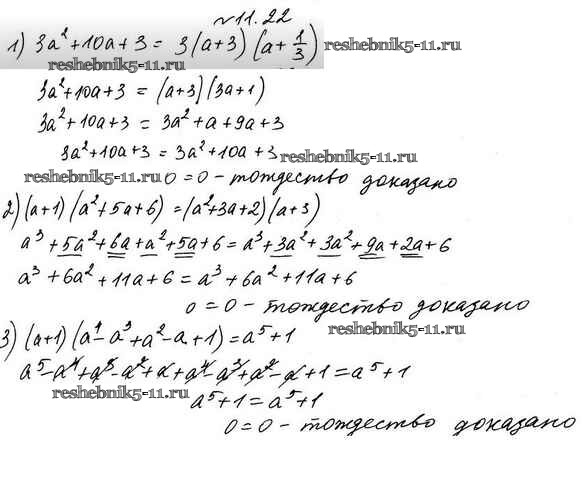 №11.22
1) 3a²+10a+3 = 3(a+3)(a+1/3) reshebnik5-11.ru
reshebnik5-11.ru
3a²+10a+3 = (a+3)(3a+1)
3a²+10a+3 = 3a²+a+9a+3
3a²+10a+3 = 3a²+10a+3 reshebnik5-11.ru
reshebnik5-11.ru 0=0 - тождество доказано
2) (a+1)(a²+5a+6)=(a²+3a+2)(a+3)
a³+5a²+6a+a²+5a+6=a³+3a²+3a²+9a+2a+6
a³+6a²+11a+6=a³+6a²+11a+6
0=0 - тождество доказано
reshebnik5-11.ru
3) (a+1)(a⁴-a³+a²-a+1)=a⁵+1
a⁵-a⁴+a³-a²+a+a⁴-a³+a²-a+1=a⁵+1
reshebnik5-11.ru
a⁵+1=a⁵+1
0=0 - тождество доказано
reshebnik5-11.ru